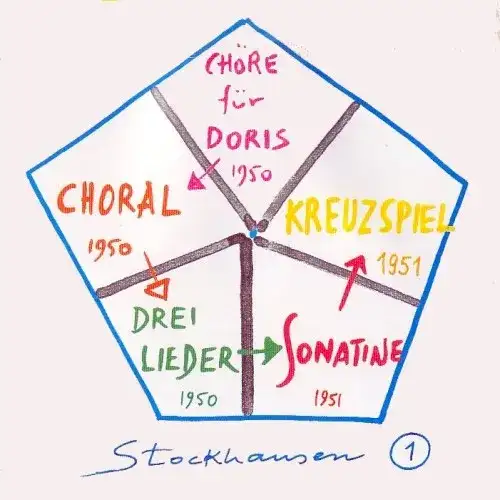 CHÖRE
für
DORIS
1950
CHORAL
1950
DREI
LIEDER
1950
SONATINE
1951
KREUZSPIEL
1951
Stockhausen 1